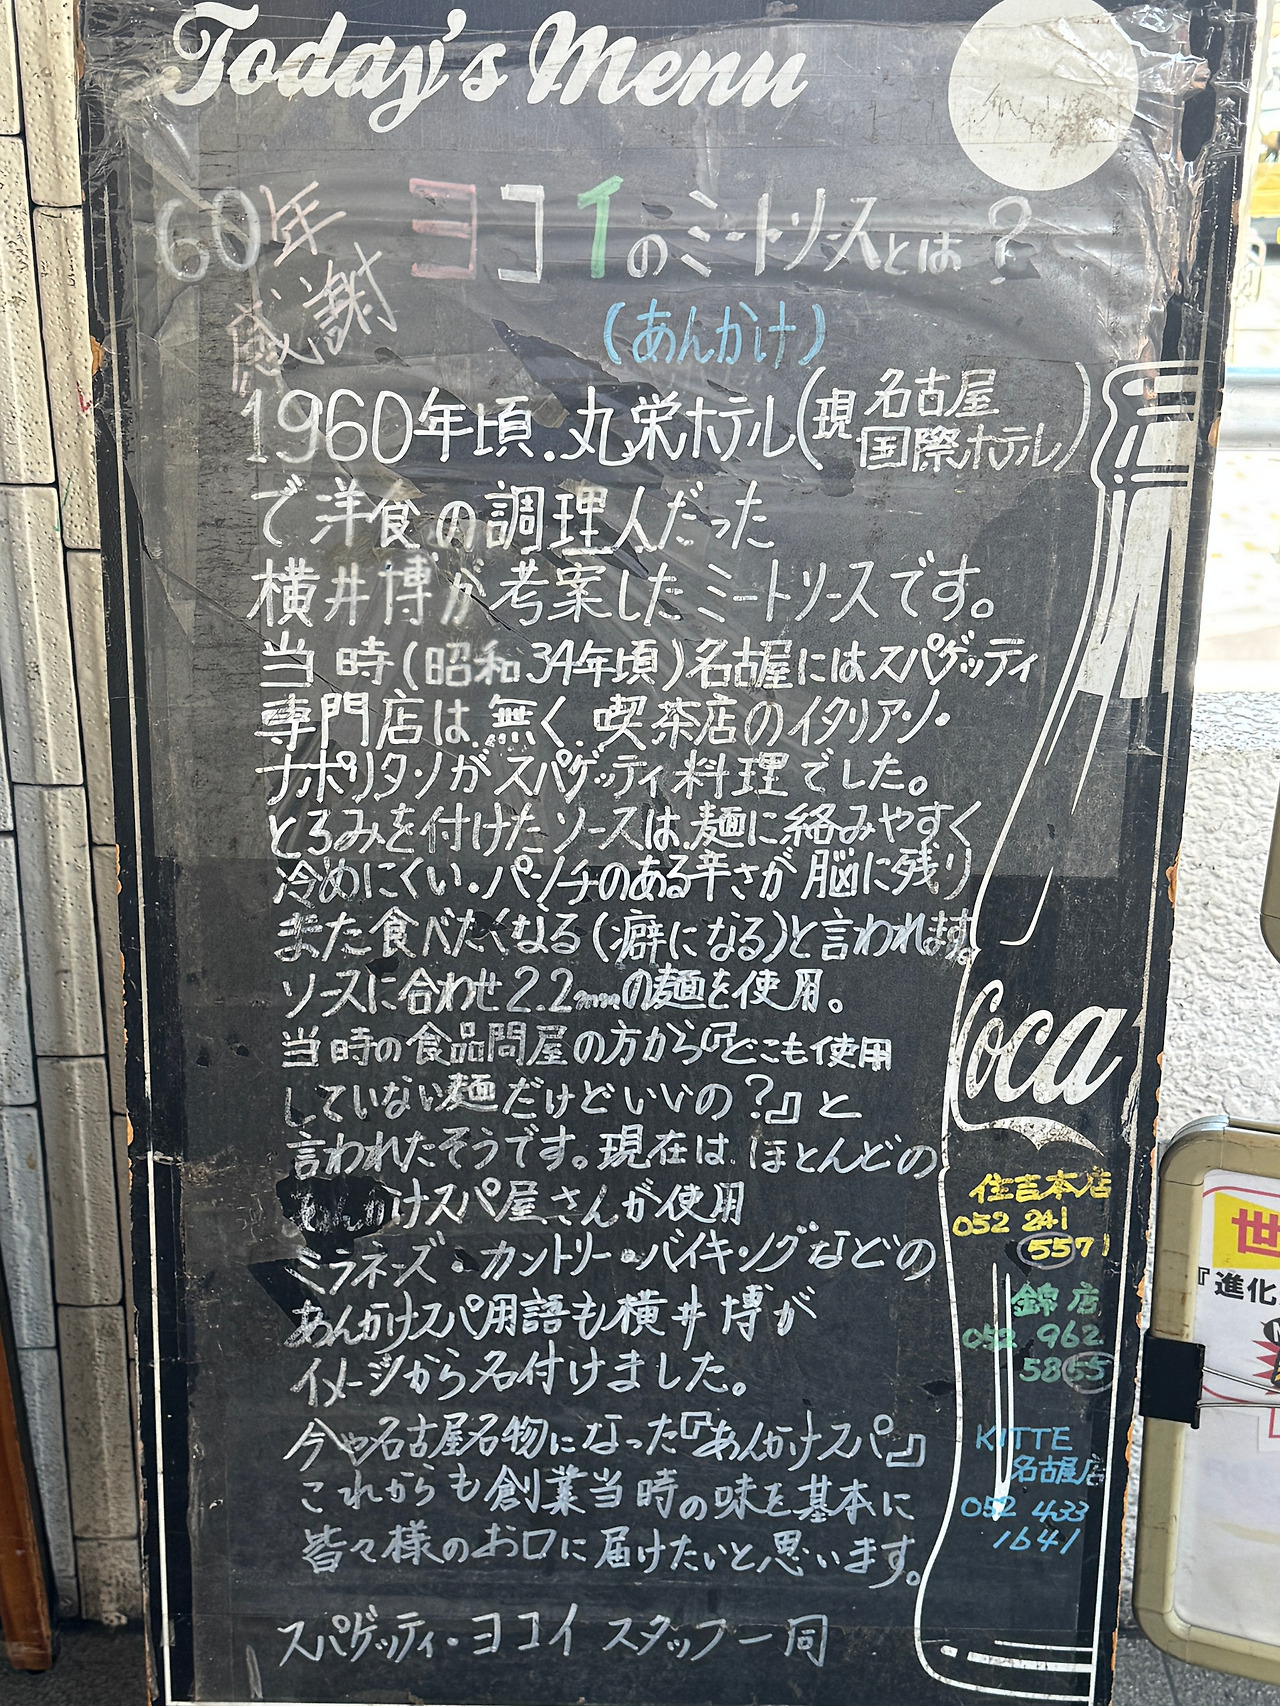 Today's Menu
60年
感謝
ヨコイのミートソースとは?
(あんかけ)
1960年頃.丸栄ホテル(現名古屋国際ホテル)
で洋食の調理人だった
横井博が考案したミートソースです。
当時(昭和34年頃)名古屋にはスパゲッティ
専門店は無く喫茶店のイタリアン・
ナポリタンがスパゲッティ料理でした。
とろみを付けたソースは麺に絡みやすく
冷めにくい・パンチのある辛さが脳に残り
また食べたくなる(癖になる)と言われます。
ソースに合わせ2.2mmの麺を使用。
当時の食品問屋の方から『どこも使用
していない麺だけどいいの?』と
言われたそうです。現在は ほとんどの
けスパ屋さんが使用
ミラネーズ・カントリー・バイキングなどの
あんかけスパ用語も横井博が
イメージから名付けました。
今や名古屋名物になった『あんかけスパ』
これからも創業当時の味を基本に
皆々様のお口に届けたいと思います。
スパゲッティ・ヨコイ スタッフ一同
Coca
住吉本店
052 241
5571
錦店
052 962
5855
KITTE
名古屋店
052 433
1641
世
『進化